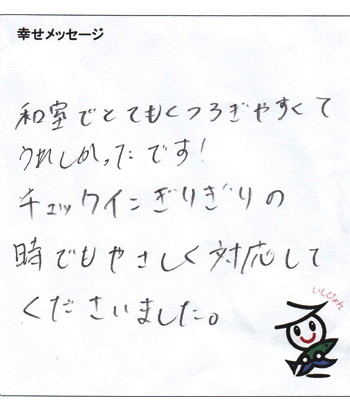 幸せメッセージ
和室でとてもくつろぎやすくて
うれしかったです!
チェックインぎりぎりの
時でもやさしく対応して
くださいました。
いしぴょん